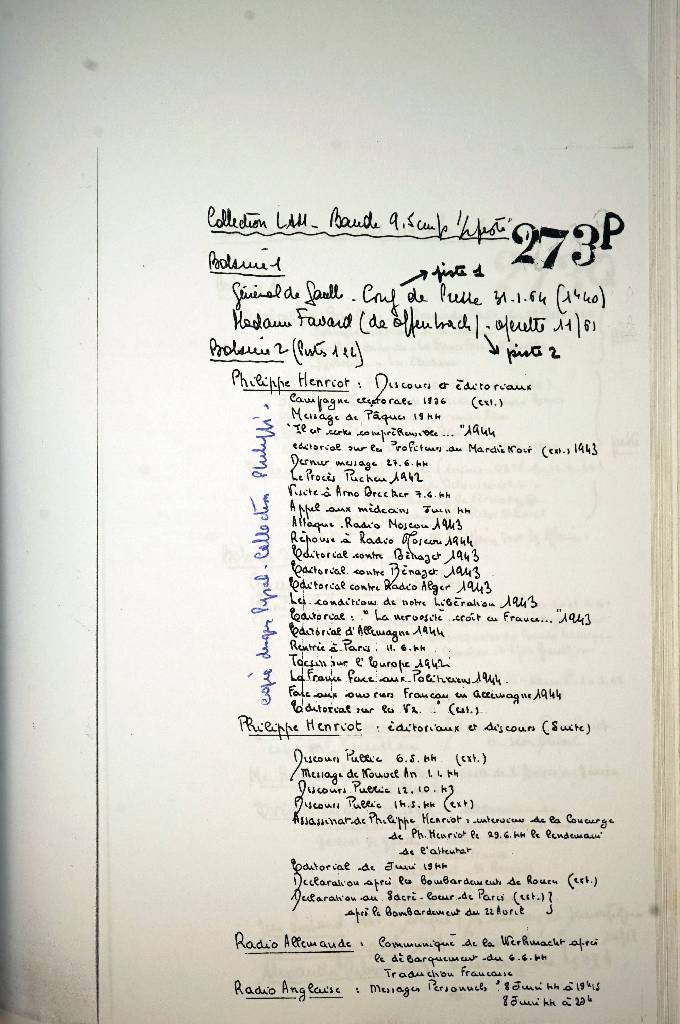 Collection LAM - Bande 9,5 cm/s 1/2 piste
273P
Bobine 1
→ piste 1
Général de Gaulle - Conf de Presse 31-1-64 (1440)
Madame Favard (de Offenbach) - opérette 11/61
→ piste 2
Bobine 2 (Pistes 1 2 2)
Philippe Henriot : Discours et éditoriaux
Campagne électorale 1936 (ext.)
Message de Pâques 1944
"Il est certes compréhensible..." 1944
editorial sur les Profiteurs du Marché Noir (ext.) 1943
Dernier message 27.6.44
Le Procès Pucheu 1942
Visite à Arno Brecker 7.6.44
Appel aux médecins Juin 44
Attaque Radio Moscou 1943
Réponse à Radio Moscou 1944
Editorial contre Bénazet 1943
Editorial contre Bénazet 1943
Editorial contre Radio Alger 1943
Les conditions de notre Libération 1943
Editorial : "La nervosité croît en France..." 1943
Editorial d'Allemagne 1944
Rentrée à Paris : 11.6.44
Tocsin sur l'Europe 1942
La France Face aux Politiciens 1944
Face aux ouvriers Français en Allemagne 1944
Editorial sur les V2 (ext.)
copie disque Collection Philippi.
Philippe Henriot : éditoriaux et discours (Suite)
Discours Public 6.5.44 (ext.)
Message de Nouvel An 1.1.44
Discours Public 12.10.43
Discours Public 14.5.44 (ext)
Assassinat de Philippe Henriot : interview de la Concierge
de Ph. Henriot le 29.6.44 le lendemain
de l'attentat
Editorial de Juin 1944
Déclaration après les Bombardements de Rouen (ext.)
Déclaration au Sacré-Coeur de Paris (ext.) }
après le Bombardement du 22 Avril }
Radio Allemande : Communiqué de la Werhmacht après
le débarquement du 6.6.44
Traduction Française
Radio Anglaise : Messages Personnels : 8 Juin 44 à 19h15
8 Juin 44 à 23h